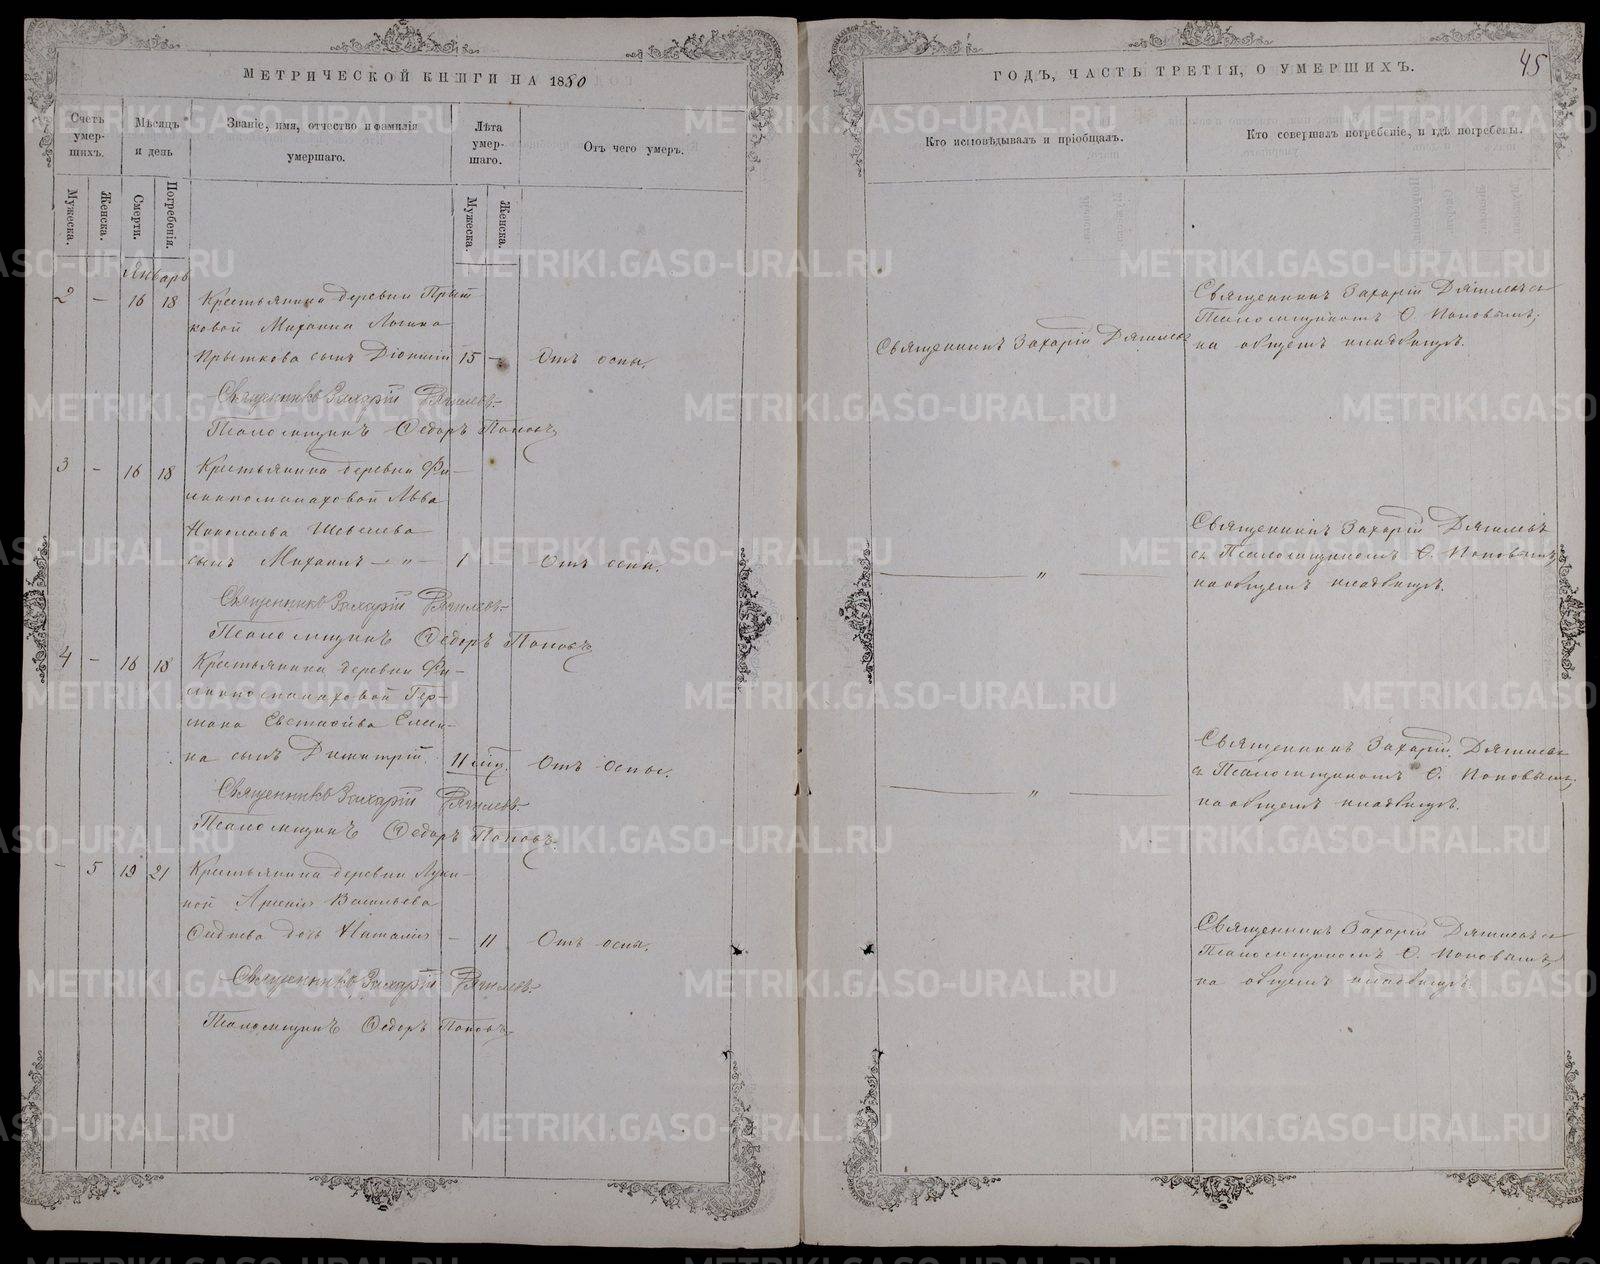 МЕТРИЧЕСКОЙ КНИГИ НА 1880
Счетъ умер-шихъ.
Мѣсяцъ и день
Званіе, имя, отчество и фамилія умершаго.
Лѣта умер-шаго.
Отъ чего умеръ.
Мужеска.
Женска.
Смерти.
Погребенія.
Мужеска.
Женска.
Январь
2 – 16 18 Крестьянина деревни Прыт-
ковой Михаила Логина
Прыткова сынъ Діонисій 15 – Отъ оспы.
Священникъ Захарій Дягилевъ
Псаломщикъ Ѳедоръ Поповъ
3 – 16 18 Крестьянина деревни Фи-
Льва
Николаева Шевелева
сынъ Михаилъ – „ – 1 Отъ оспы.
Священникъ Захарій Дягилевъ
Псаломщикъ Ѳедоръ Поповъ
4 – 16 18 Крестьянина деревни Фи-
Гер-
мана Евстафіева Елки-
на сынъ Димитрій 11 мѣс. Отъ оспы.
Священникъ Захарій Дягилевъ
Псаломщикъ Ѳедоръ Поповъ
– 5 19 21 Крестьянина деревни
Васильева
дочь Наталія – 11 Отъ оспы.
Священникъ Захарій Дягилевъ
Псаломщикъ Ѳедоръ Поповъ
ГОДЪ, ЧАСТЬ ТРЕТІЯ, О УМЕРШИХЪ.
45
Кто исповѣдывалъ и пріобщалъ.
Кто совершалъ погребеніе, и гдѣ погребены.
Священникъ Захарій Дягилевъ
Священникъ Захарій Дягилевъ съ
Псаломщикомъ Ѳ. Поповымъ,
на общемъ кладбищѣ.
„
Священникъ Захарій Дягилевъ
съ Псаломщикомъ Ѳ. Поповымъ,
на общемъ кладбищѣ.
„
Священникъ Захарій Дягилевъ
съ Псаломщикомъ Ѳ. Поповымъ,
на общемъ кладбищѣ.
Священникъ Захарій Дягилевъ съ
Псаломщикомъ Ѳ. Поповымъ,
на общемъ кладбищѣ.
METRIKI.GASO-URAL.RU